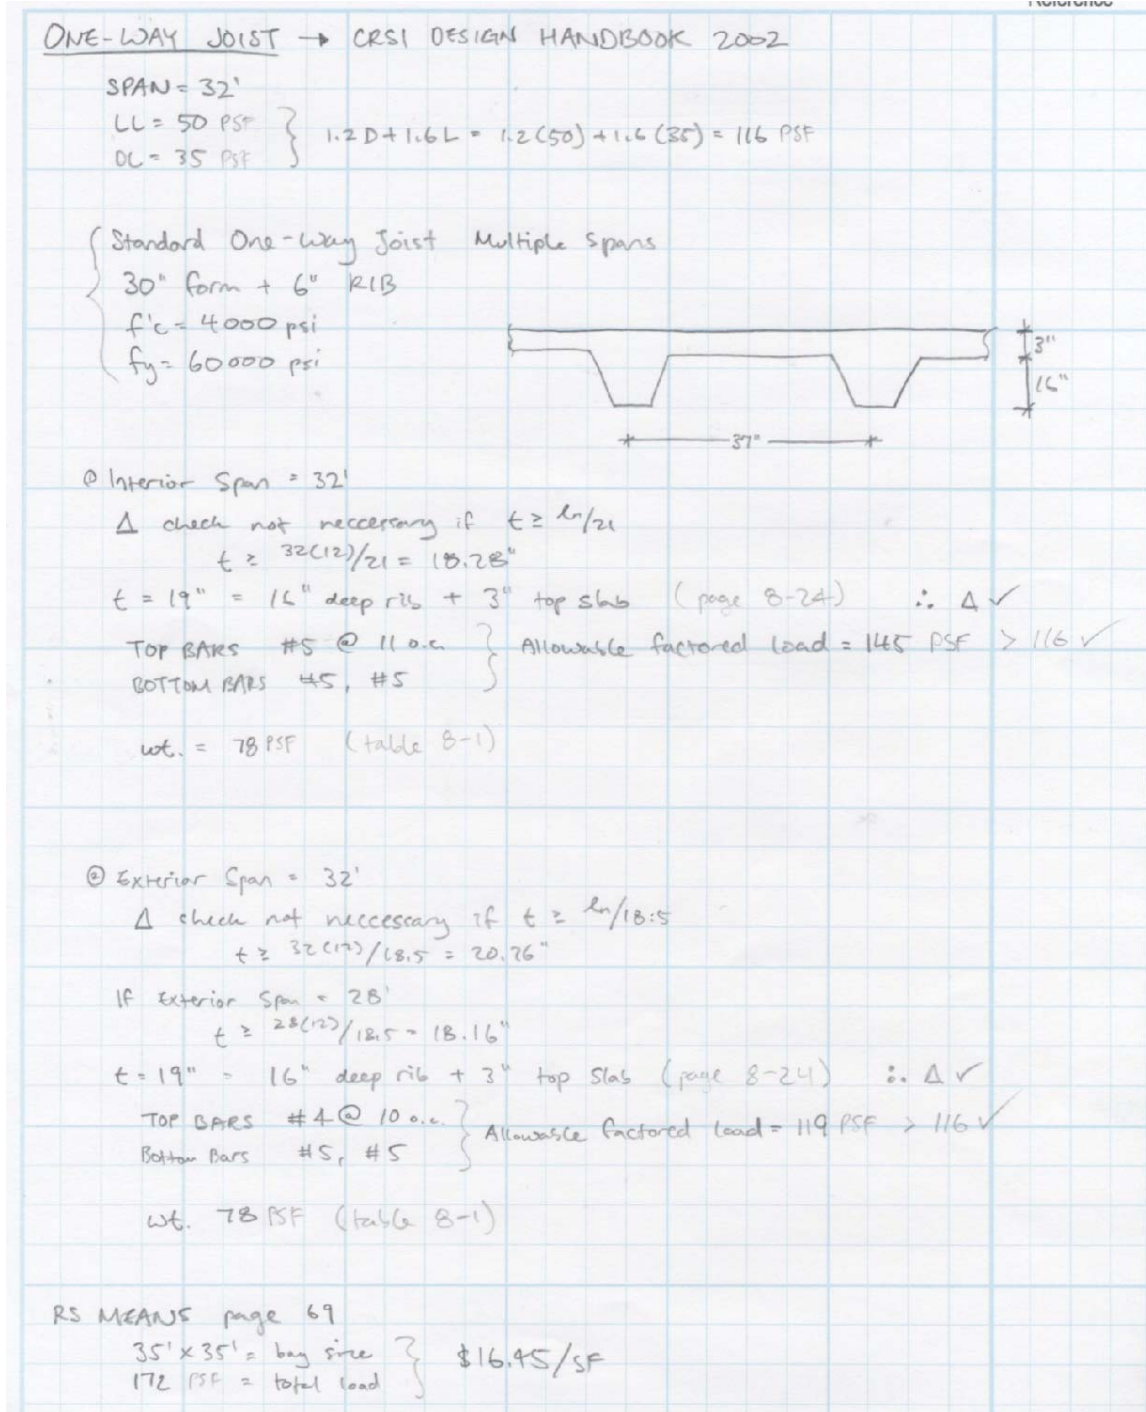 Reference
ONE-WAY JOIST → CRSI DESIGN HANDBOOK 2002
SPAN = 32'
LL = 50 PSF
DL = 35 PSF
1.2 D + 1.6 L = 1.2 (50) + 1.6 (35) = 116 PSF
Standard One-Way Joist Multiple Spans
30" form + 6" RIB
f'c = 4000 psi
fy = 60000 psi
3"
16"
37"
@ Interior Span = 32'
Δ check not neccersary if t ≥ ln/21
t ≥ 32(12)/21 = 18.28"
t = 19" = 16" deep rib + 3" top slab (page 8-24) ∴ Δ ✓
TOP BARS #5 @ 11 o.c.
BOTTOM BARS #5, #5
Allowable factored load = 145 PSF > 116 ✓
wt. = 78 PSF (table 8-1)
@ Exterior Span = 32'
Δ check not neccessary if t ≥ ln/18.5
t ≥ 32(12)/18.5 = 20.76"
If Exterior Span = 28'
t ≥ 28(12)/18.5 = 18.16"
t = 19" = 16" deep rib + 3" top slab (page 8-24) ∴ Δ ✓
TOP BARS #4 @ 10 o.c.
Bottom Bars #5, #5
Allowable factored load = 119 PSF > 116 ✓
wt. 78 PSF (table 8-1)
RS MEANS page 69
35' x 35' = bay size
172 PSF = total load
$16.45/SF